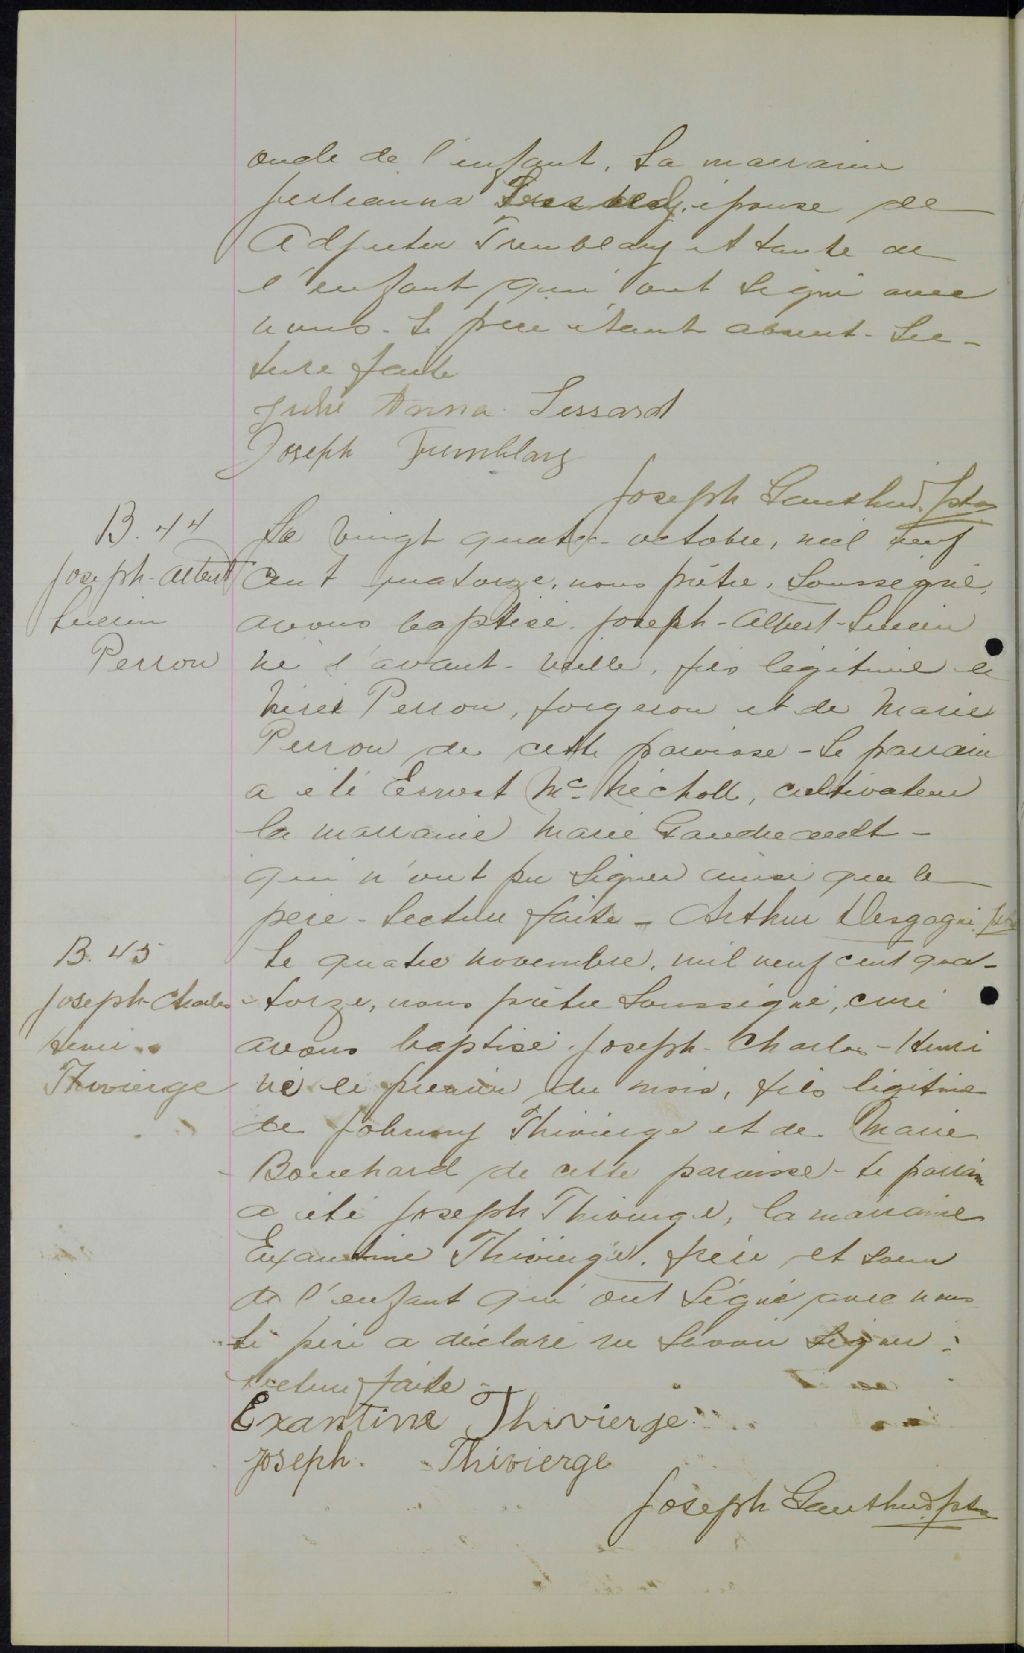 oncle de l'enfant. La marraine
Julianna épouse de
Adjutor Tremblay et tante de
l'enfant qui ont signé avec
nous. Le père étant absent. Lec-
ture faite
Julie Anna Lessard
Joseph Tremblay
Joseph Gauthier Ptre
B. 44
Joseph-Albert
Lucien
Perron
Le vingt quatre octobre, mil neuf
cent quatorze, nous prêtre, soussigné,
avons baptisé Joseph-Albert-Lucien
né l'avant-veille, fils légitime de
Perron, forgeron et de Marie
Perron de cette paroisse - Le parrain
a été Ernest Mc Nicholl, cultivateur
la marraine Marie Gaudreault -
qui n'ont pu signer ainsi que le
père - Lecture faite - Arthur Desgagné Ptre
B. 45
Joseph-Charles
Henri
Thivierge
Le quatre novembre, mil neuf cent qua-
torze, nous prêtre soussigné, curé
avons baptisé Joseph-Charles-Henri
né le premier du mois, fils légitime
de Johnny Thivierge et de Marie
Bouchard de cette paroisse - Le parrain
a été Joseph Thivierge, la marraine
Exantine Thivierge, frère et soeur
de l'enfant qui ont signé avec nous
Le père a déclaré ne savoir signer.
Lecture faite -
Exantine Thivierge
Joseph. Thivierge
Joseph Gauthier Ptre